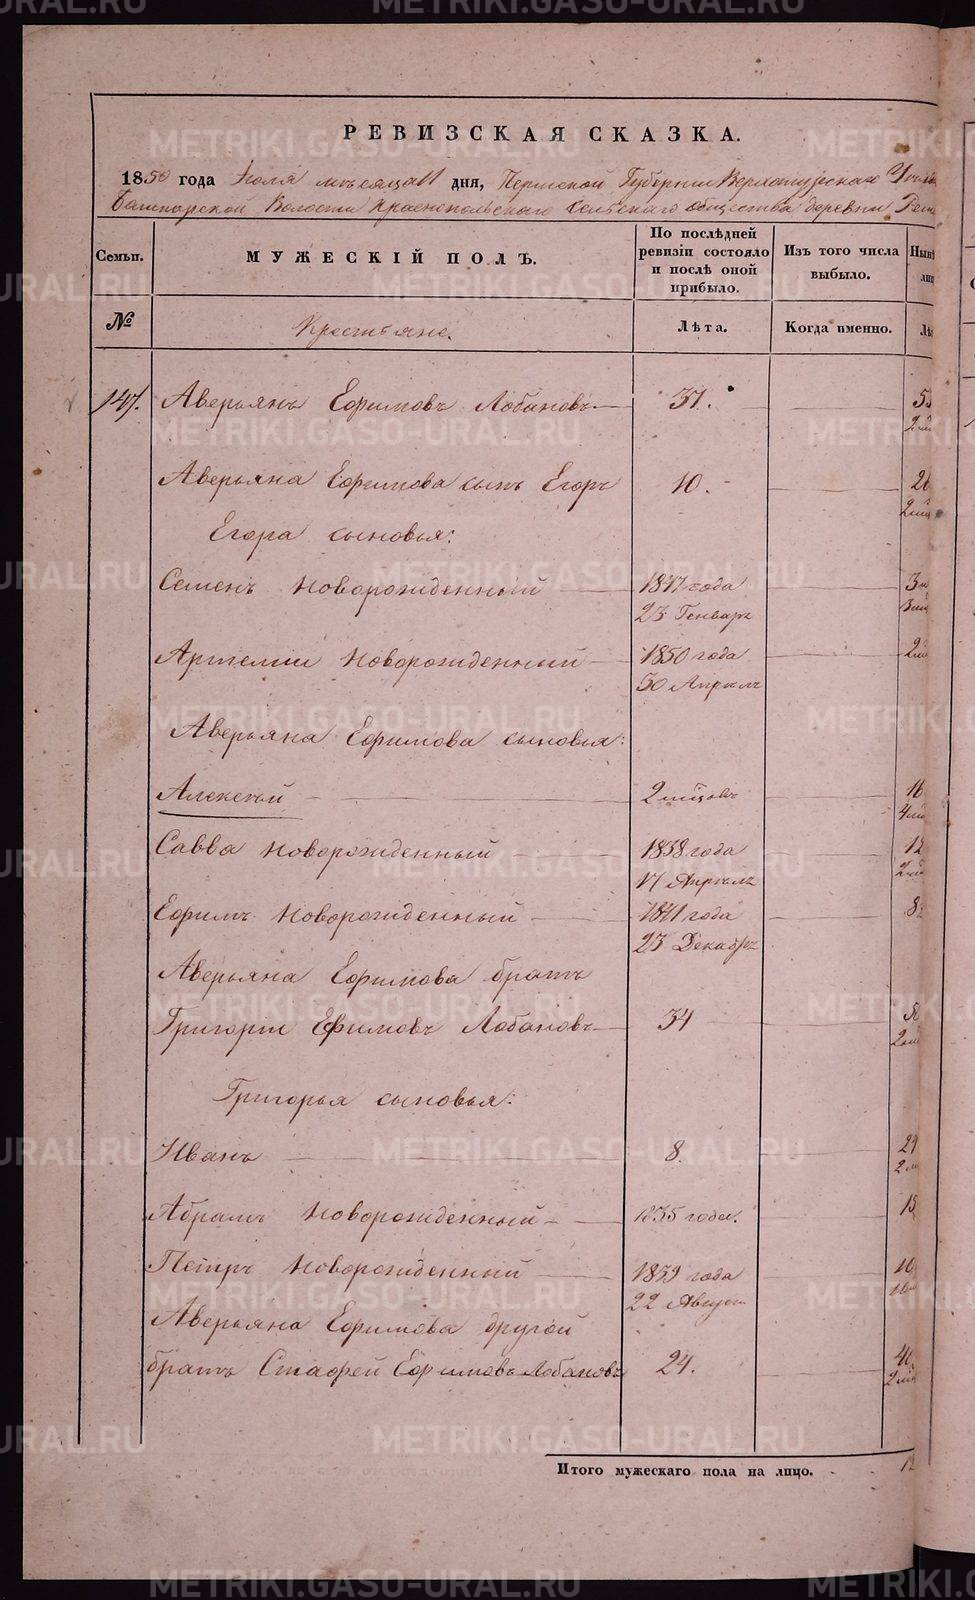 РЕВИЗСКАЯ СКАЗКА.
1850 года Июля месяца 11 дня, Пермской Губернии Верхотурскаго
Башкарской Волости Краснопольскаго сельскаго общества деревни
Семьи.
МУЖЕСКІЙ ПОЛЪ.
По послѣдней ревизіи состояло и послѣ оной прибыло.
Изъ того числа выбыло.
№
Крестьяне.
Лѣта.
Когда именно.
147. Аверьянъ Ефимовъ Лобановъ 37.
Аверьяна Ефимова сынъ Егоръ 10.
Егора сыновья:
Семенъ новорожденный 1847 года
23 Генваря
Артемий новорожденный 1850 года
30 Апрѣля
Аверьяна Ефимова сыновья:
Алексѣй 2 мѣсяцовъ
Савва новорожденный 1838 года
17 Апрѣля
Ефимъ новорожденный 1841 года
23 Декабря
Аверьяна Ефимова братъ
Григорій Ефимовъ Лобановъ 34
Григорья сыновья:
Иванъ 8.
Абрамъ новорожденный 1835 года.
Петръ новорожденный 1839 года
22 Август
Аверьяна Ефимова другой
братъ Стафей Ефимовъ Лобановъ 24.
Итого мужескаго пола на лицо.
METRIKI.GASO-URAL.RU